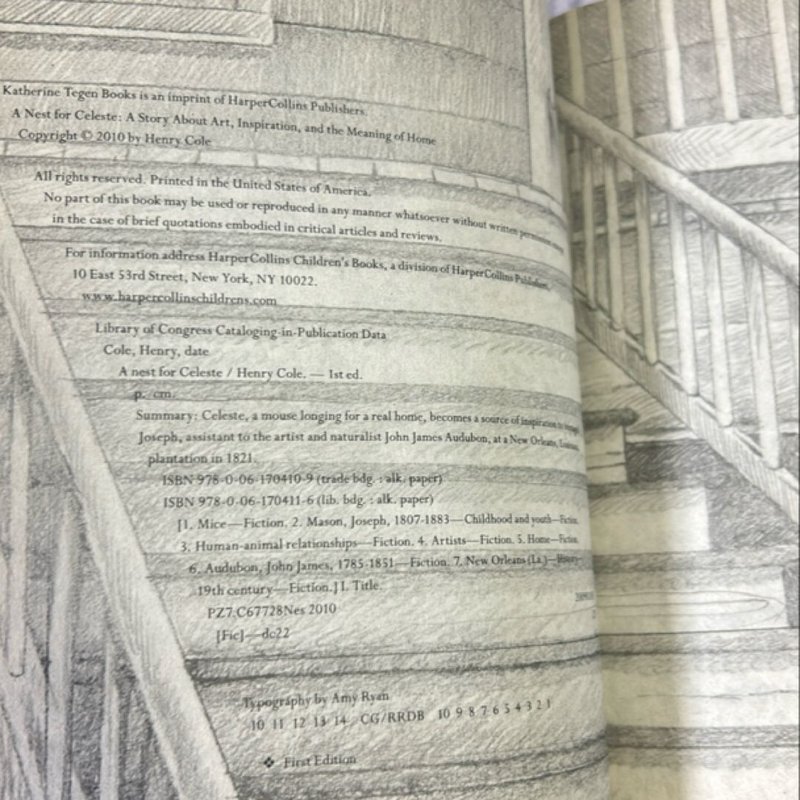 Katherine Tegen Books is an imprint of HarperCollins Publishers.
A Nest for Celeste: A Story About Art, Inspiration, and the Meaning of Home
Copyright © 2010 by Henry Cole
All rights reserved. Printed in the United States of America.
No part of this book may be used or reproduced in any manner whatsoever without written permission
in the case of brief quotations embodied in critical articles and reviews.
For information address HarperCollins Children's Books, a division of HarperCollins Publishers,
10 East 53rd Street, New York, NY 10022.
www.harpercollinschildrens.com
Library of Congress Cataloging-in-Publication Data
Cole, Henry, date
A nest for Celeste / Henry Cole. — 1st ed.
p. cm.
Summary: Celeste, a mouse longing for a real home, becomes a source of inspiration to
Joseph, assistant to the artist and naturalist John James Audubon, at a New Orleans, Louisiana,
plantation in 1821.
ISBN 978-0-06-170410-9 (trade bdg. : alk. paper)
ISBN 978-0-06-170411-6 (lib. bdg. : alk. paper)
[1. Mice—Fiction. 2. Mason, Joseph, 1807-1883—Childhood and youth—Fiction.
3. Human-animal relationships—Fiction. 4. Artists—Fiction. 5. Home—Fiction.
6. Audubon, John James, 1785-1851—Fiction. 7. New Orleans (La.)—History—
19th century—Fiction.] I. Title.
PZ7.C67728Nes 2010
[Fic]—dc22
Typography by Amy Ryan
10 11 12 13 14 CG/RRDB 10 9 8 7 6 5 4 3 2 1
❖ First Edition